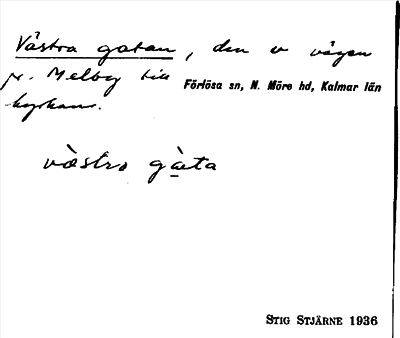 Västra gatan, den v vägen
fr. Melby till
Förlösa sn, N. Möre hd, Kalmar län
kyrkan.
vàstro gàeta
STIG STJÄRNE 1936